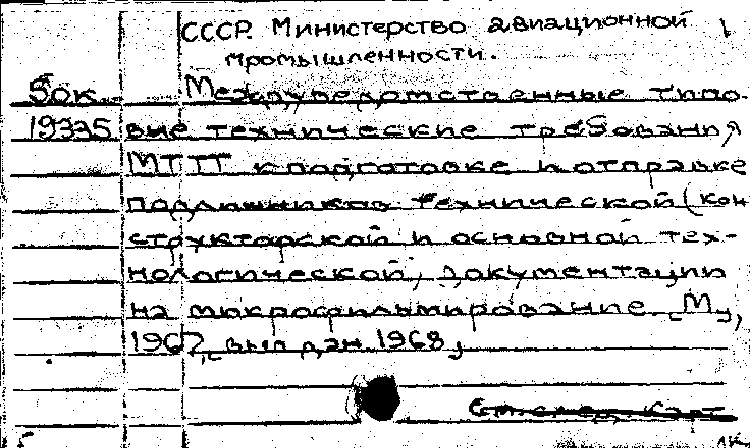 СССР. Министерство авиационной
промышленности.
5ок Междуведомственные типо-
19335 вые технические требования
МТТТ к подготовке и отправке
подлинников технической (кон
структорской и основной тех-
нологической) документации
на микрофильмирование. М.,
1967, вып дан. 1968,
См. след. карт